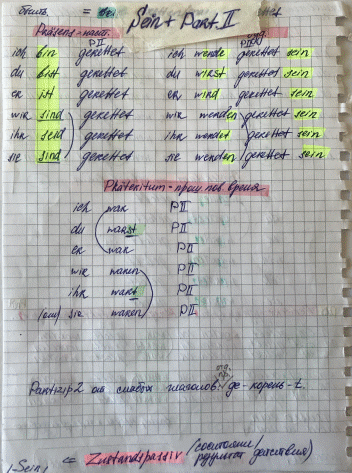 быть = sein
Sein + Part. II
Präsens - наст.
PII
ich bin gerettet ich werde gerettet sein
du bist gerettet du wirst gerettet sein
er ist gerettet er wird gerettet sein
wir sind gerettet wir werden gerettet sein
ihr seid gerettet ihr werdet gerettet sein
sie sind gerettet sie werden gerettet sein
Präteritum - прошлое время
ich war PII
du warst PII
er war PII
wir waren PII
ihr wart PII
sie waren PII
Partizip 2 от слабых глаголов: ge-корень-t.
Sein = Zustandspassiv (состояние/
действия)